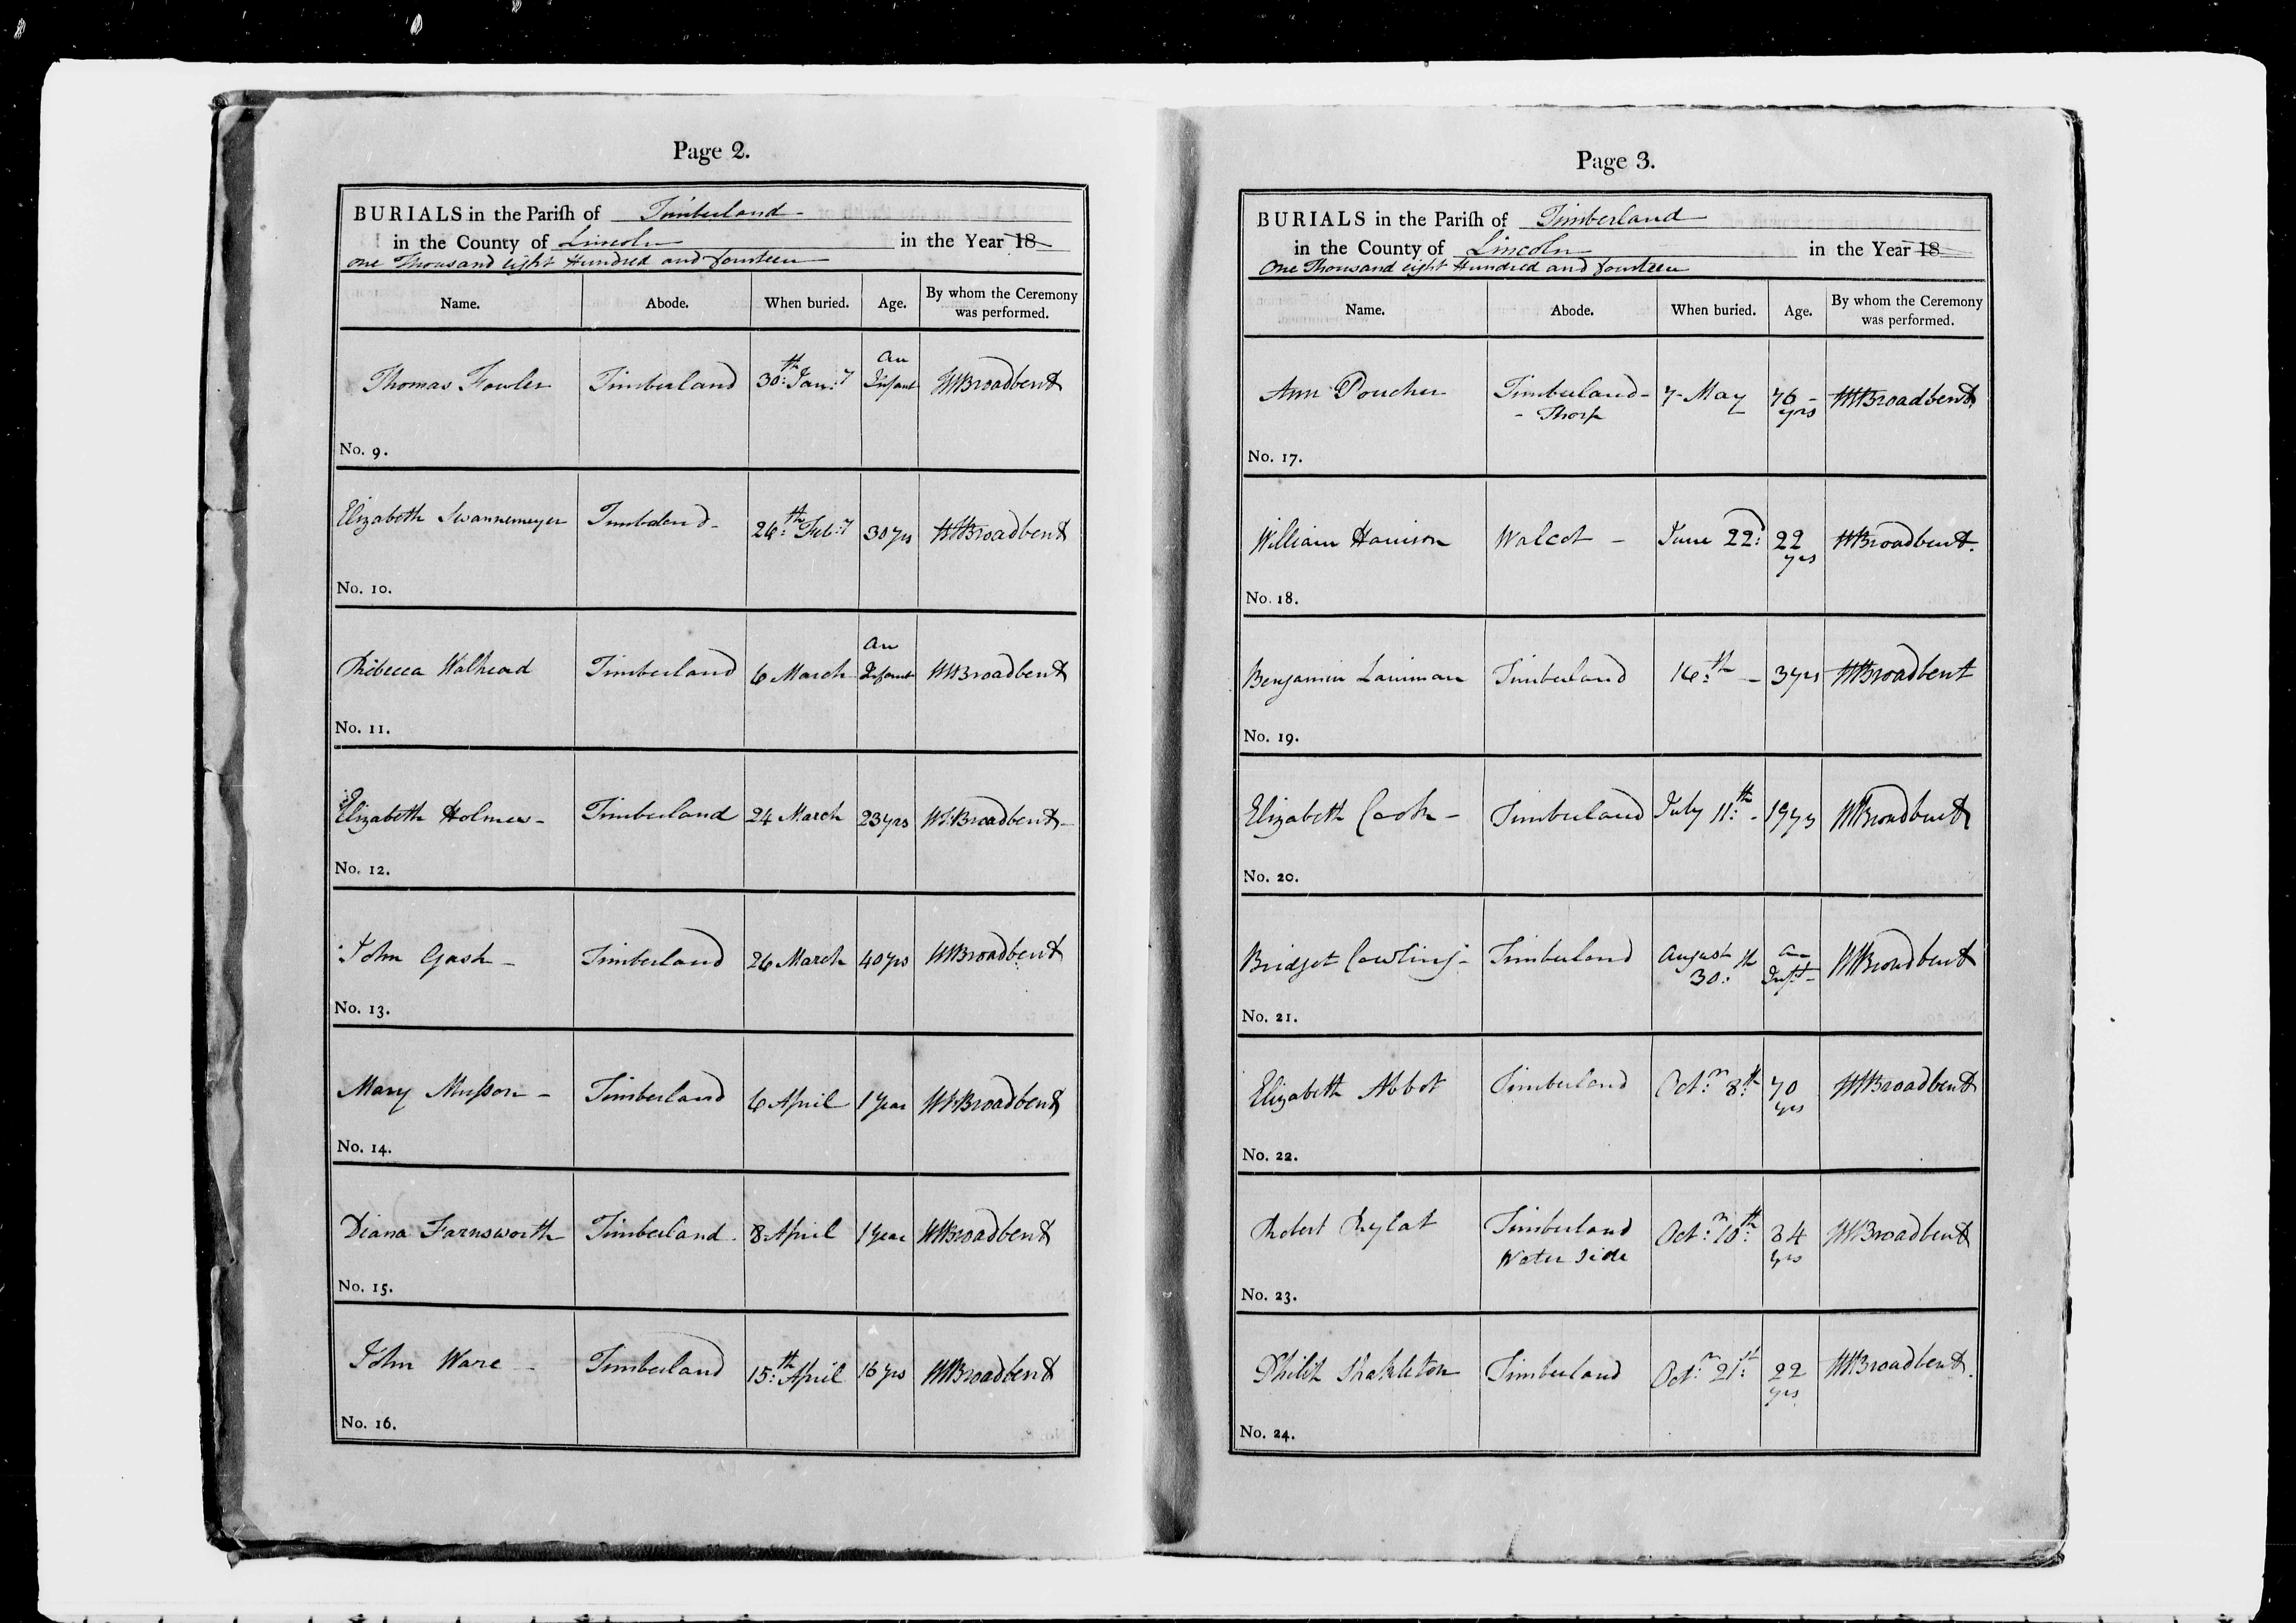 Page 2.
BURIALS in the Pariſh of Timberland-
in the County of Lincoln in the Year 18
One Thousand eight Hundred and fourteen
Name. Abode. When buried. Age. By whom the Ceremony was performed.
Thomas Fowler Timberland 30:th Jan:y An Infant WBroadbent
No. 9.
Elizabeth Swannemeyer Timberland- 26:th Feb:y 30 yrs WBroadbent
No. 10.
Rebecca Walhead Timberland 6 March An Infant WBroadbent
No. 11.
Elizabeth Holmes- Timberland 24 March 23 yrs WBroadbent-
No. 12.
John Gash - Timberland 26 March 40 yrs WBroadbent
No. 13.
Mary Muſson - Timberland 6 April 1 Year WBroadbent
No. 14.
Diana Farnsworth Timberland 8 April 1 Year WBroadbent
No. 15.
John Ware - Timberland 15:th April 16 yrs WBroadbent
No. 16.
Page 3.
BURIALS in the Pariſh of Timberland
in the County of Lincoln in the Year 18
One Thousand eight Hundred and fourteen
Name. Abode. When buried. Age. By whom the Ceremony was performed.
Ann Poucher Timberland- 7 May 76 - WBroadbent
- Thorp yrs
No. 17.
William Harrison Walcot - June 22:d 22 WBroadbent.
yrs
No. 18.
Benjamin Timberland 16:th - 3 yrs WBroadbent
No. 19.
Elizabeth Cook - Timberland July 11:th - 19 ys WBroadbent
No. 20.
Bridget Cowling - Timberland August An WBroadbent
30:th Inft-
No. 21.
Elizabeth Abbot Timberland Oct:r 8:th 70 WBroadbent
yrs
No. 22.
Robert Rylat Timberland Oct:r 10:th 34 WBroadbent
Water Side yrs
No. 23.
Philip Shakleton Timberland Oct:r 21:st 22 WBroadbent.
yrs
No. 24.